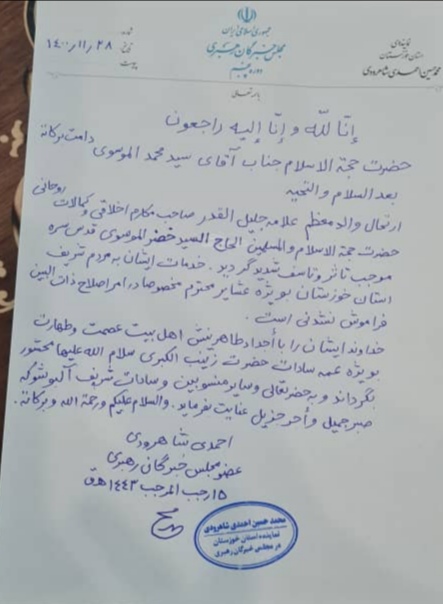 جمهوری اسلامی ایران
مجلس خبرگان رهبری
دوره پنجم
نماینده‌ی
استان خوزستان
محمدحسین احمدی شاهرودی
شماره:
تاریخ: ۱۴۰۰/۱۱/۲۸
پیوست:
باسمه تعالی
إنّا لله و إنّا إلیه راجعون
حضرت حجة الاسلام جناب آقای سید محمد الموسوی دامت برکاته
بعد السلام والتحیه
ارتحال والد معظم علامه جلیل القدر صاحب مکارم اخلاقی و کمالات روحانی
حضرت حجة الاسلام والمسلمین الحاج السید خضر الموسوی قدس سره
موجب تاثر و تاسف شدید گردید. خدمات ایشان به مردم شریف
استان خوزستان بویژه عشایر محترم مخصوصا در امر اصلاح ذات البین
فراموش نشدنی است.
خداوند ایشان را با أجداد طاهرینش اهل بیت عصمت و طهارت
بویژه عمه سادات حضرت زینب الکبری سلام الله علیها محشور
بگرداند و به حضرتعالی و سایر منسوبین و سادات شریف آلبوشوکه
صبر جمیل و أجر جزیل عنایت بفرماید. والسلام علیکم و رحمة الله و برکاته.
احمدی شاهرودی
عضو مجلس خبرگان رهبری
۱۵ رجب المرجب ۱۴۴۳ هـ ق
محمد حسین احمدی شاهرودی
نماینده استان خوزستان
در مجلس خبرگان رهبری